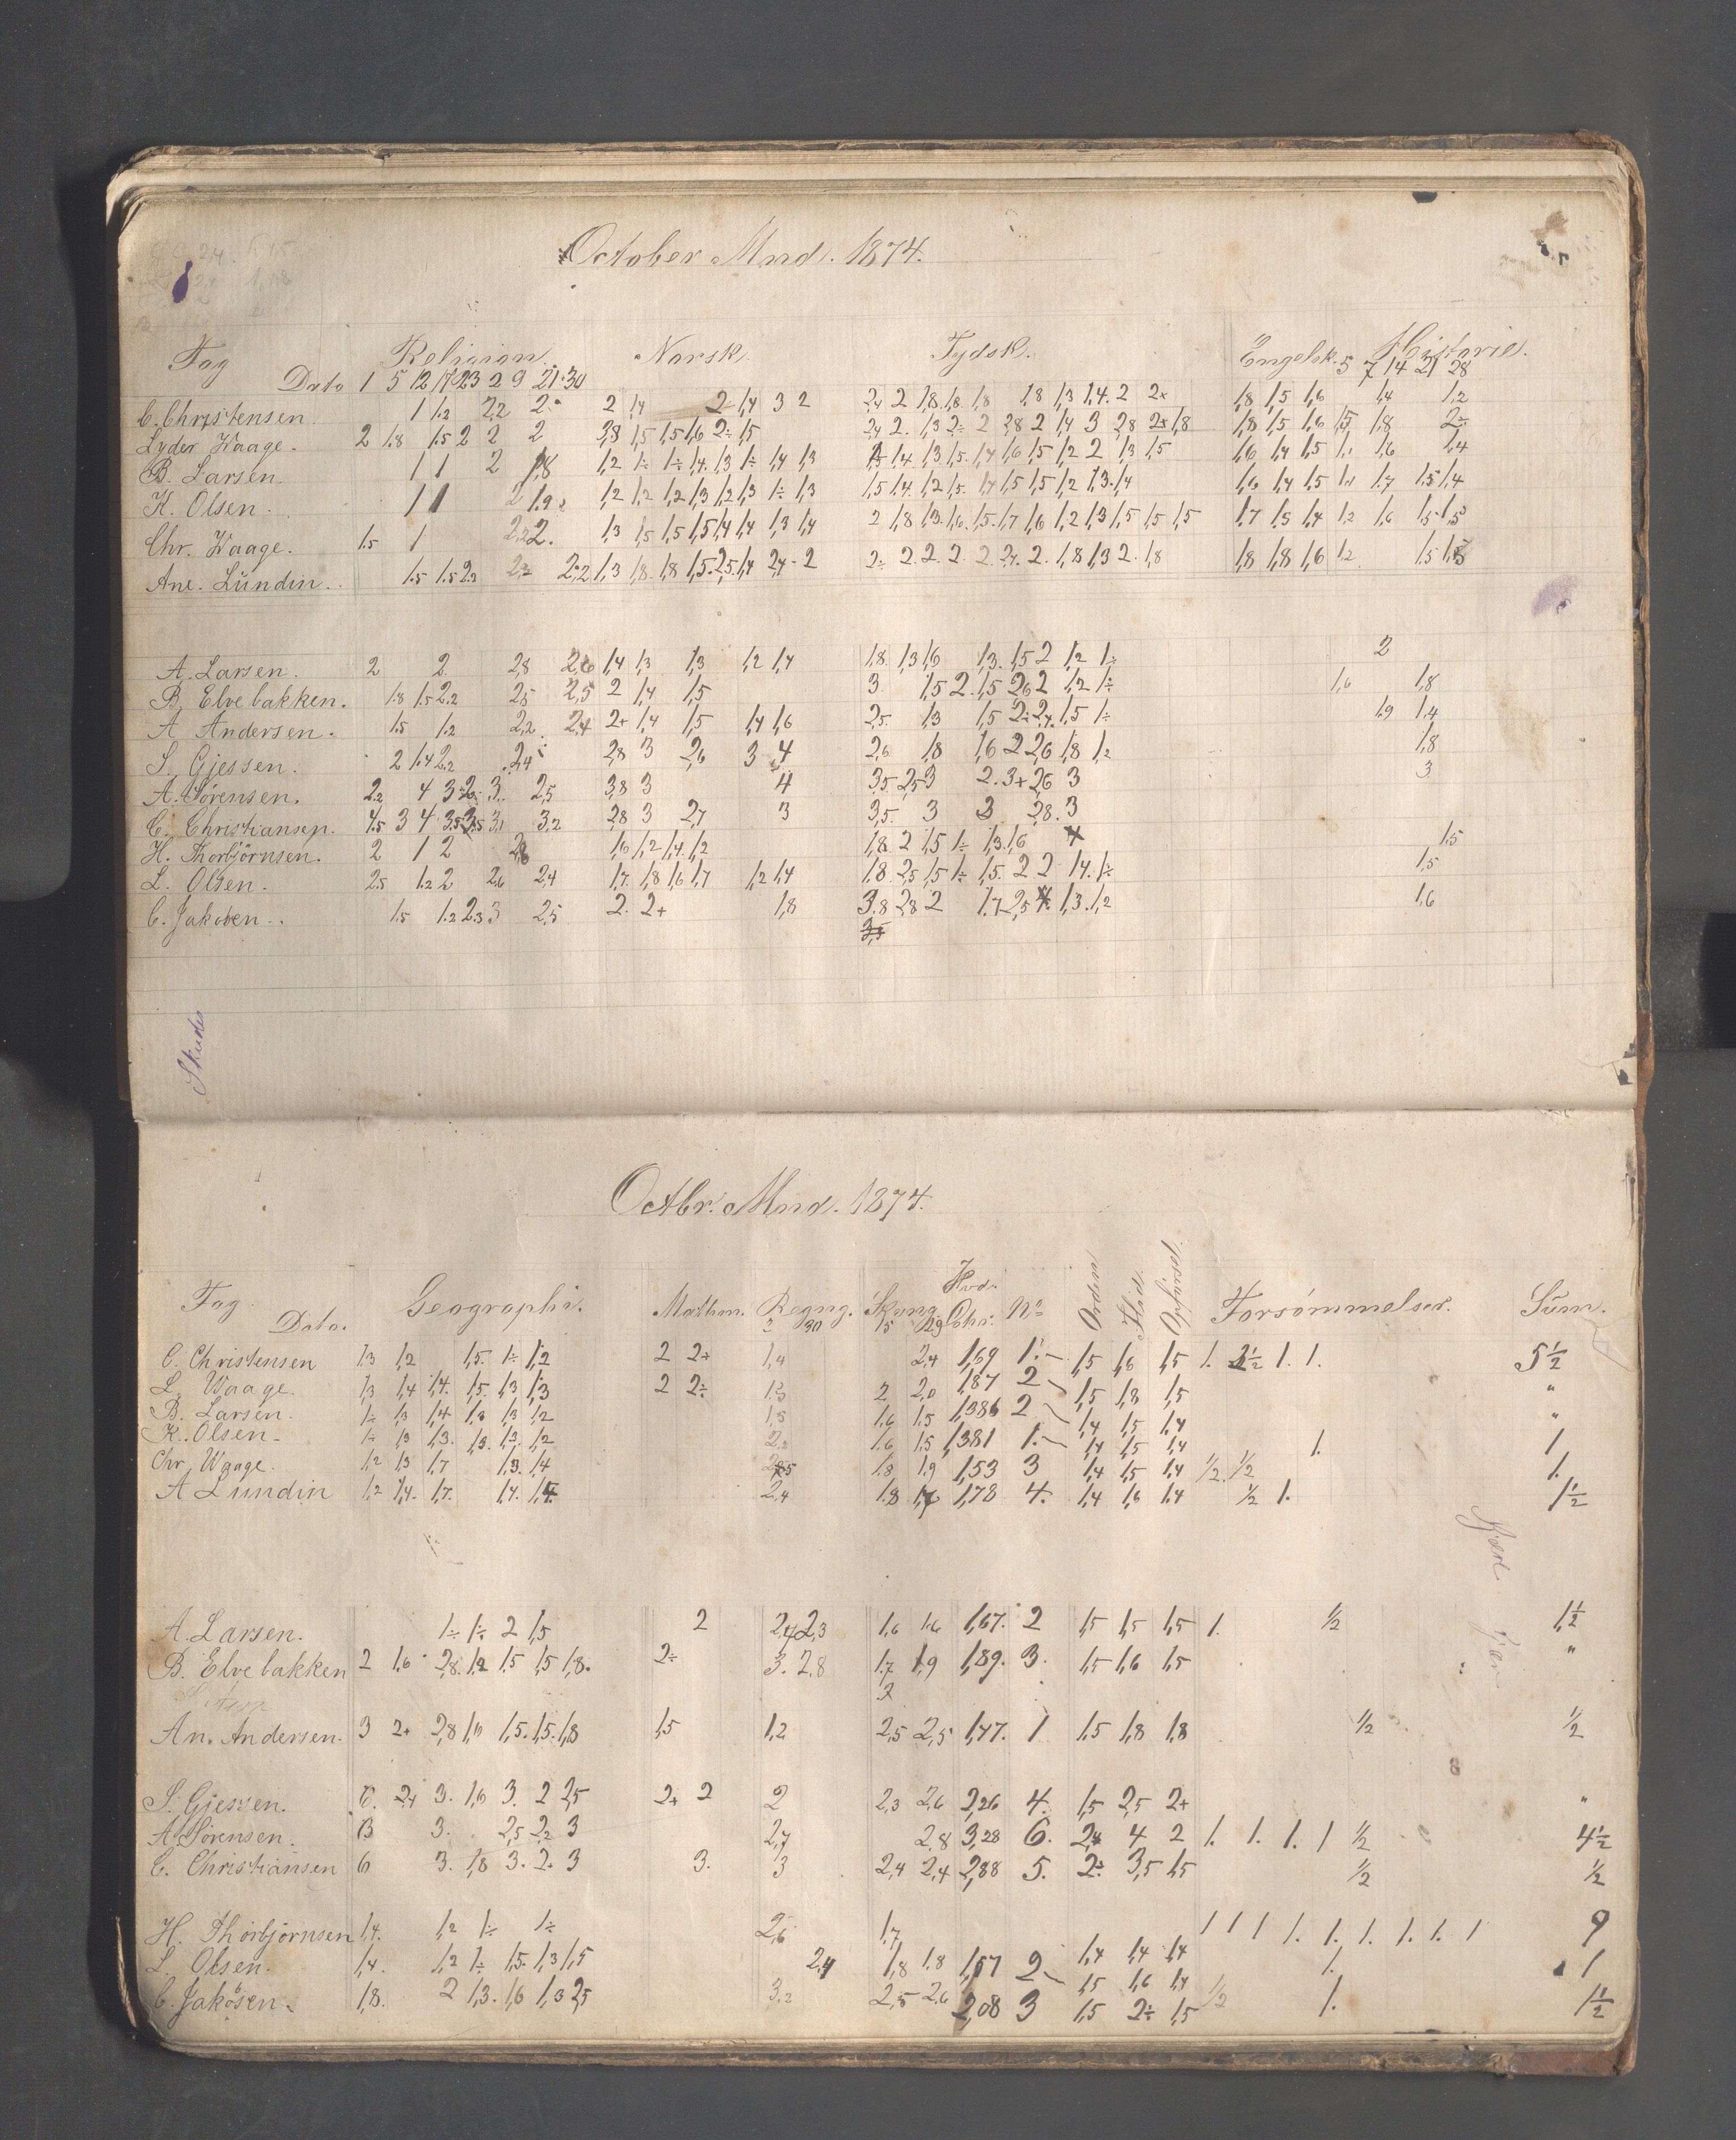 October Mnd. 1874.
Fag Religion. Norsk. Tydsk. Engelsk. Historie.
Dato 1 5 12 17 23 2 9 21 30 5 7 14 21 28
C. Christensen 1 1.2 2,2 2 2 1,4 2 1,4 3 2 2,4 2 1,8 1,8 1,8 1,8 1,3 1,4 2 2+ 1,8 1,5 1,6 1,4 1,2
Lyder Waage. 2 1.8 1.5 2 2 2 2,8 1,5 1,5 1,6 2÷ 1,5 2,4 2. 1,3 2÷ 2 2,8 2 1,4 3 2,8 2+ 1,8 1,8 1,5 1,6 1,5 1,8 2÷
B. Larsen. 1 1 2 1,8 1,2 1÷ 1÷ 1,4 1,3 1÷ 1,4 1,3 1,5 1,4 1,3 1,5 1,4 1,6 1,5 1,2 2 1,3 1,5 1,6 1,4 1,5 1,1 1,6 1,4
K. Olsen. 1 1 2 1,9 1,2 1,2 1,2 1,3 1,2 1,3 1÷ 1,3 1,5 1,4 1,2 1,5 1,4 1,5 1,5 1,2 1,3 1,4 1,6 1,4 1,5 1,1 1,7 1,5 1,4
Chr. Waage. 1.5 1 2,2 2. 1,3 1,5 1,5 1,5 1,4 1,4 1,3 1,4 2 1,8 1,3 1,6 1,5 1,7 1,6 1,2 1,3 1,5 1,5 1,5 1,7 1,5 1,4 1,2 1,6 1,5 1,5
Ane. Lundin. 1.5 1.5 2.2 2,2 2,2 1,3 1,8 1,8 1,5 2,5 1,4 2,4 2 2÷ 2. 2. 2. 2. 2,4. 2. 1,8 1,3 2. 1,8 1,8 1,8 1,6 1,2 1,5 1,8
A. Larsen. 2 2 2,8 2,6 1,4 1,3 1,3 1,2 1,4 1,8 1,3 1,6 1,3. 1,5 2 1,2 1÷ 2
B. Elvebakken. 1.8 1.5 2.2 2,5 2,5 2 1,4 1,5 3. 1,5 2. 1,5 2,6 2 1,2 1÷ 1,6 1,8
A Andersen. 1.5 1.2 2,2 2,4 2+ 1,4 1,5 1,4 1,6 2,5. 1,3 1,5 2÷ 2,4. 1,5 1÷ 1,9 1,4
S. Gjessen. 2 1.4 2.2 2,4 2,8 3 2,6 3 4 2,6 1,8 1,6 2 2,6 1,8 1,2 1,8
A. Sørensen. 2.2 4 3 2 3. 2,5 3,8 3 4 3,5 2,5 3 2. 3+ 2,6 3 3
C. Christiansen. 4.5 3 4 3.5 3.5 3,1 3,2 2,8 3 2,7 3 3,5. 3 3 2,8. 3
H. Thorbjörnsen. 2 1 2 2,8 1,6 1,2 1,4 1,2 1,8 2 1,5 1÷ 1,3. 1,6 1,5
L. Olsen. 2.5 1.2 2 2,6 2,4 1,7 1,8 1,6 1,7 1,2 1,4 1,8. 2,5 1,5 1÷ 1,5. 2 2 1,4. 1÷ 1,5
C. Jakobsen. 1.5 1.2 2.3 3 2,5 2. 2+ 1,8 3,8 2,8 2 1,7 2,5 1,3. 1,2 1,6
3,5
Skudes
Octbr. Mnd. 1874.
Fag Geographi. Mathm. Regng. Skrvng. Hvd. Chr. No Orden Flid. Opförsel. Forsømmelser. Sum.
Dato. 2 30 15 29
C. Christensen 1,3 1,2 1,5. 1÷ 1,2 2 2+ 1,4 2,4 1,69 1. 1,5 1,6 1,5 1. 2½ 1. 1. 5½
L. Waage. 1,3 1,4 1,4. 1,5. 1,3 1,3 2 2÷ 1,5 2 2,0 1,87 2 1,5 1,8 1,5 "
B. Larsen. 1÷ 1,3 1,4 1,3 1,3 1,2 1,5 1,6 1,5 1,386 2 1,4 1,5 1,4 "
K. Olsen. 1÷ 1,3 1,3. 1,3. 1,3. 1,2 2,2 1,6 1,5 1,381 1. 1,4 1,5 1,4 1. 1
Chr. Waage. 1,2 1,3 1,7 1,3. 1,4 1,8 1,9 1,53 3 1,4 1,5 1,4 ½. ½ 1.
A Lundin 1,2 1,4. 1,7. 1,4. 1,4. 2,4 1,8 1,78 4. 1,4 1,6 1,4 ½ 1. 1½
A. Larsen. 1÷ 1÷ 2 1,5 2 2,4 2,3 1,6 1,6 1,67. 2 1,5 1,5 1,5 1. ½ 1½
B. Elvebakken 2 1,6 2,8. 1,2 1,5 1,5 1,8. 2÷ 3. 2,8 1,7 1,9 1,89. 3. 1,5 1,6 1,5 "
An. Andersen. 3 2+ 2,8 1,6 1,5. 1,5. 1,8 1,5 1,2 2,5 2,5 1,47. 1 1,5 1,8 1,8 ½ ½
S. Gjessen. 2,4 3. 1,6 3. 2 2,5 2+ 2 2 2,3 2,6 2,26 4. 1,5 2,5 2+ "
A. Sørensen. 3. 2,5 2,2 3 2,7 2,8 3,28 6. 2,4 4 2 1. 1. 1. 1 ½ 4½
C. Christiansen 6 3. 1,8 3. 2. 3 3. 3 2,4 2,4 2,88 5. 2÷ 3,5 1,5 ½ ½
H. Thorbjörnsen 1,4. 1,2 1÷ 1÷ 2,6 1,7 1,4 1,4 1,4 1 1 1 1. 1. 1. 1. 1. 1 9
L. Olsen. 1,4. 1,2 1÷ 1,5. 1,3 1,5 2,4 1,8 1,8 1,57 2 1,5 1,6 1,4 1. 1
C. Jakobsen. 1,8. 2 1,3. 1,6 1,3 2,5 3,2 2,5 2,6 2,08 3 1,5 2÷ 1,5 ½ 1. 1½